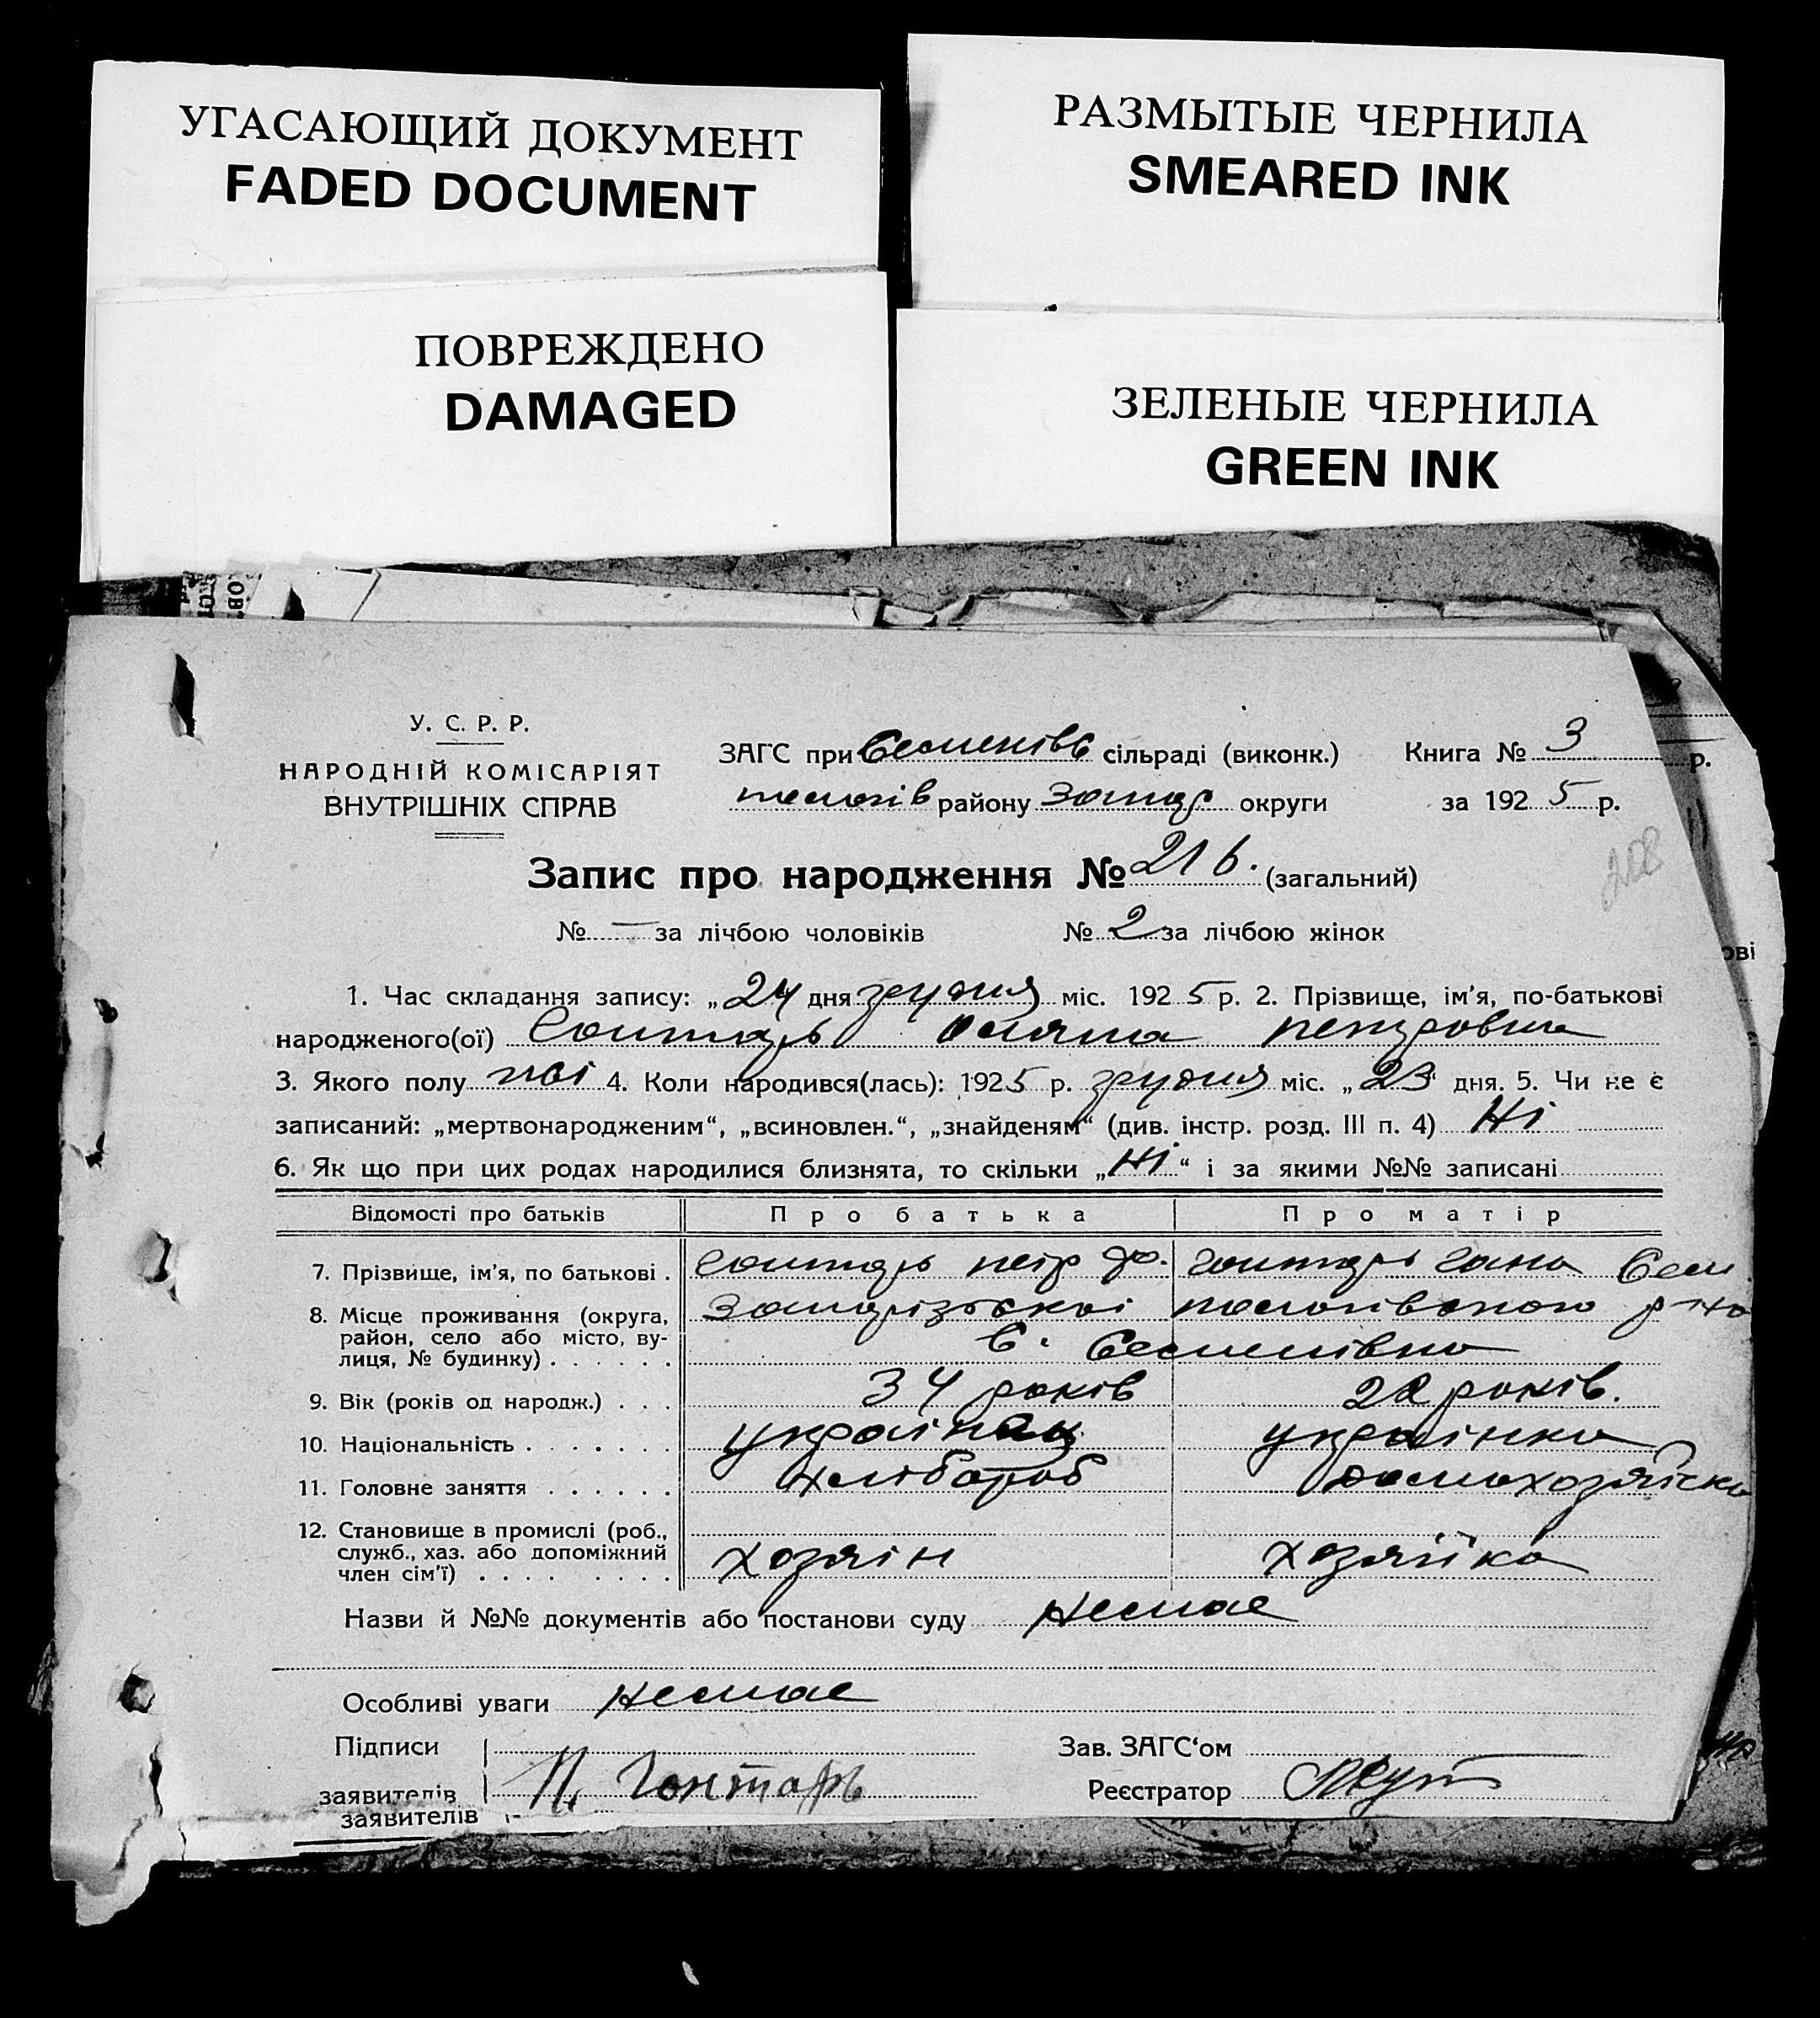 УГАСАЮЩИЙ ДОКУМЕНТ
FADED DOCUMENT
РАЗМЫТЫЕ ЧЕРНИЛА
SMEARED INK
ПОВРЕЖДЕНО
DAMAGED
ЗЕЛЕНЫЕ ЧЕРНИЛА
GREEN INK
У. С. Р. Р.
НАРОДНІЙ КОМІСАРІЯТ
ВНУТРІШНІХ СПРАВ
ЗАГС при Семенівс сільраді (виконк.) Книга № 3
пологів району Запор округи за 1925 р.
р.
Запис про народження № 216. (загальний)
208
№ — за лічбою чоловіків № 2 за лічбою жінок
ові
1. Час складання запису: „24 дня грудня міс. 1925 р. 2. Прізвище, ім'я, по-батькові
народженого(ої) Гонтарь петровна
3. Якого полу жі 4. Коли народився(лась): 1925 р. грудня міс. „23" дня. 5. Чи не є
записаний: „мертвонародженим“, „всиновлен.“, „знайденям“ (див. інстр. розд. III п. 4) Ні
6. Як що при цих родах народилися близнята, то скільки „Ні“ і за якими №№ записані
Відомості про батьків Про батька Про матір
7. Прізвище, ім'я, по батькові . Гонтарь петр Гонтарь Гана Сем.
8. Місце проживання (округа, район, село або місто, вулиця, № будинку) . . . . . . Запорізької пологівського р-на
с. Семенівка
9. Вік (років од народж.) . . . 34 років 22 років.
10. Національність . . . . . . . українец українка
11. Головне заняття . . . . . . хлібороб домохозяйка
12. Становище в промислі (роб., служб., хаз. або допоміжний член сім'ї) . . . . . . . . хозяін хозяйка
Назви й №№ документів або постанови суду Немае
Особливі уваги Немае
Підписи
заявителів П. Гонтарь
Зав. ЗАГС‘ом
Реєстратор
заявителів